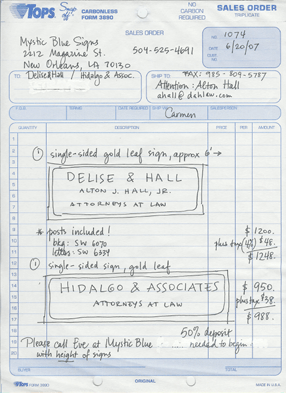 TOPS
CARBONLESS
FORM 3890
NO
CARBON
REQUIRED
SALES ORDER
TRIPLICATE
SALES ORDER
Mystic Blue Signs
2212 Magazine St.
New Orleans, LA 70130
504-525-4691
NO. 1074
DATE 6/20/07
TO Delise & Hall / Hidalgo & Assoc.
SHIP TO FAX: 985-309-5787
Attention: Alton Hall
ahall@dahlaw.com
TERMS
DATE REQUIRED
Carmen
SALESPERSON
QUANTITY
DESCRIPTION
PRICE
PER
AMOUNT
① single-sided gold leaf sign, approx 6' →
DELISE & HALL
ALTON J. HALL, JR.
ATTORNEYS AT LAW
* posts included! $1200.
bkg: SW 6070 plus tax (4%) $48.
letters: SW 6339 $1248.
① single-sided sign, gold leaf
HIDALGO & ASSOCIATES $950.
ATTORNEYS AT LAW plus tax $38.
$988.
50% deposit
Please call Eve at Mystic Blue needed to begin
with height of signs
TOTAL
TOPS FORM 3890
ORIGINAL
MADE IN U.S.A.